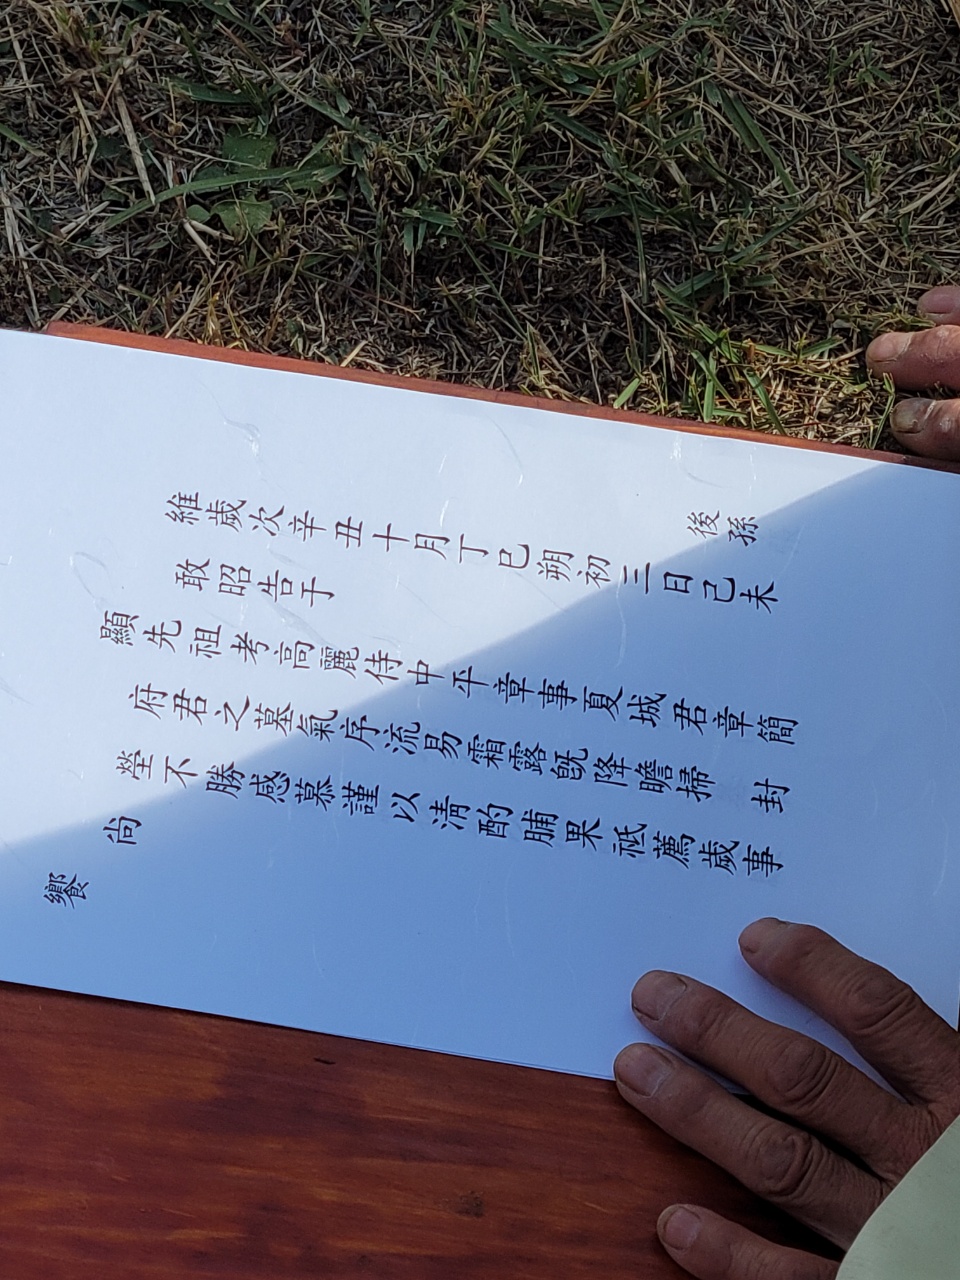 維歲次辛丑十月丁巳朔初三日己未 後孫
敢昭告于
顯先祖考高麗侍中平章事夏城君章簡
府君之墓氣序流易霜露旣降瞻掃 封
塋不勝感慕謹以淸酌脯果祗薦歲事
尚
饗